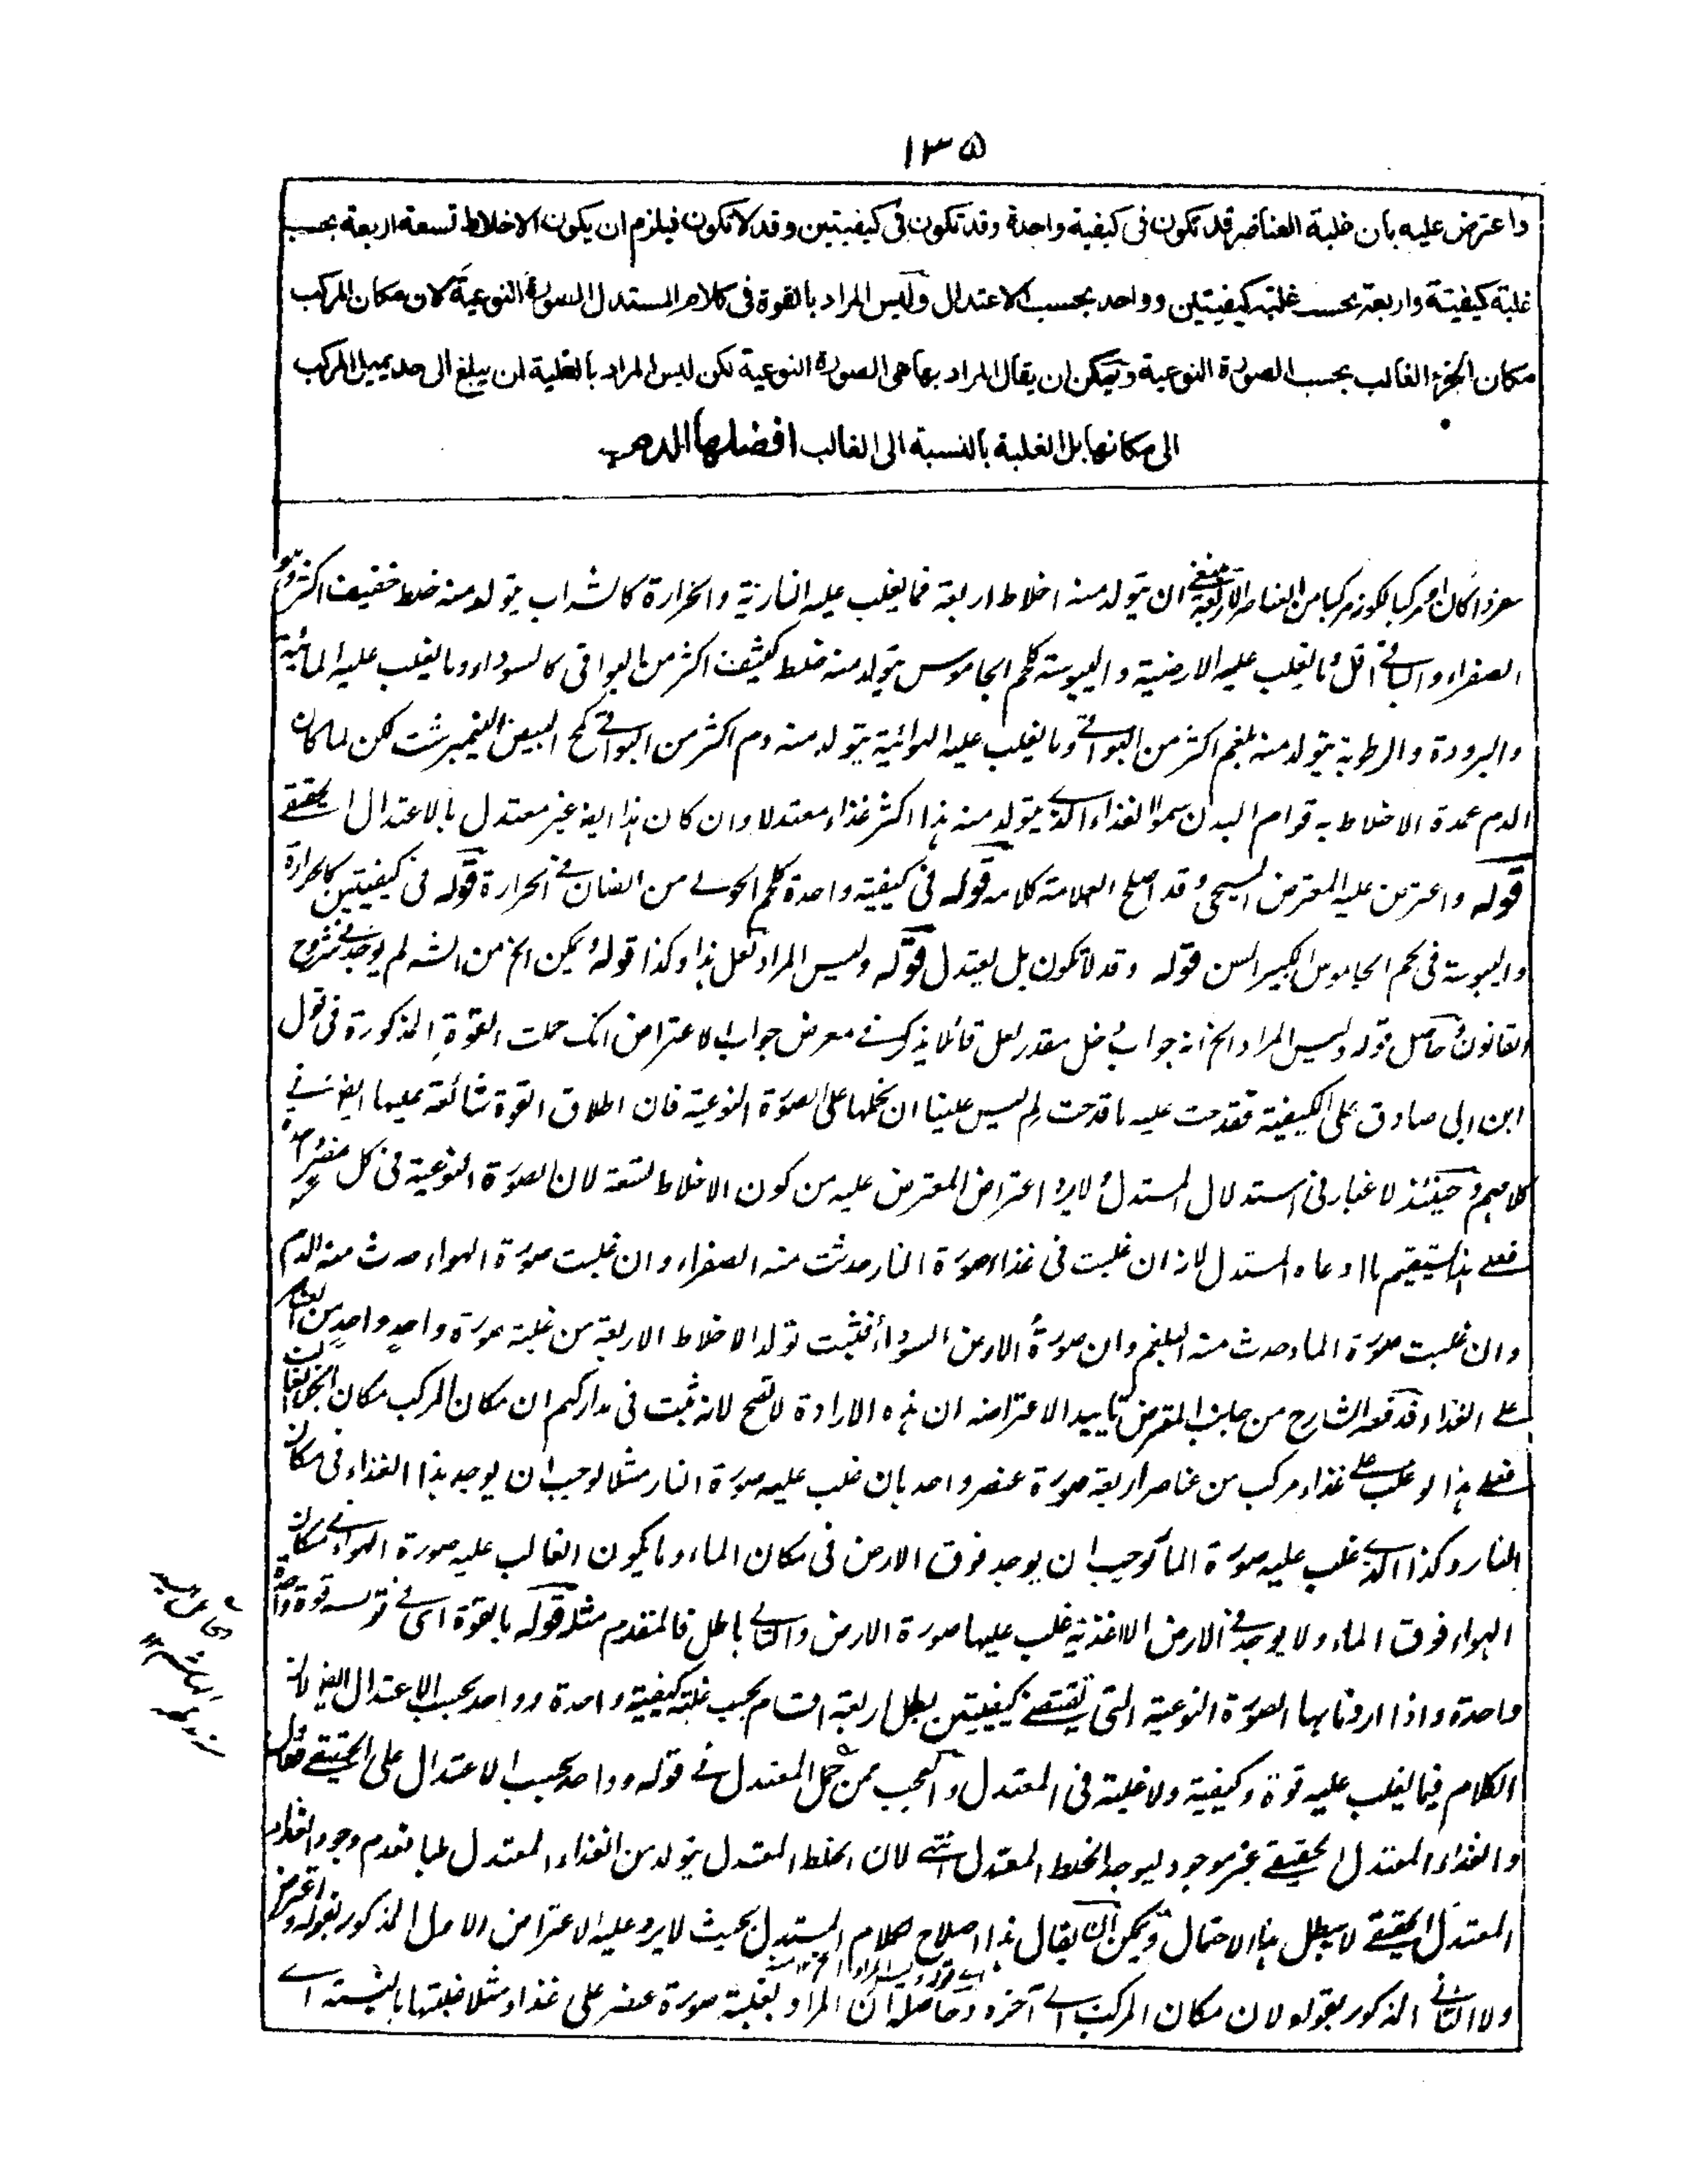 ١٣٥
واعترض عليه بأن غلبة العناصر قد تكون فى كيفية واحدة وقد تكون فى كيفيتين وقد لا تكون فيلزم ان يكون الاخلاط تسعة اربعة بحسب
غلبة كيفية واربعة بحسب غلبة كيفيتين وواحد بحسب الاعتدال وليس المراد بالقوة فى كلام المستدل الصورة النوعية لان مكان المركب
مكان الجزء الغالب بحسب الصورة النوعية ويمكن ان يقال المراد بها هى الصورة النوعية لكن ليس المراد بالغلبة ان يبلغ الى حد يميل المركب
الى مكانها بل الغلبة بالنسبة الى الغالب افضلها الدم
كان او مركبا لكونه مركبا من العناصر الاربعة ينبغى ان يتولد منه اخلاط اربعة فما يغلب عليه النارية والحرارة كالشراب يتولد منه خلط خفيف اكثر وهو
الصفراء والباقى اقل وما يغلب عليه الارضية واليبوسة كلحم الجاموس يتولد منه خلط كثيف اكثر من البواقى كالسوداء وما يغلب عليه المائية
والبرودة والرطوبة يتولد منه بلغم اكثر من البواقى وما يغلب عليه الهوائية يتولد منه دم اكثر من البواقى كمح البيض النيمبرشت لكن لما كان
الدم عمدة الاخلاط به قوام البدن سموا الغذاء الذى يتولد منه هذا اكثر غذاء معتدلا وان كان هذا ايضا غير معتدل بالاعتدال الحقيقى
قوله واعترض عليه المعترض المسيحى وقد اصلح العلامة كلامه قوله فى كيفية واحدة كلحم الحولى من الضان فى الحرارة قوله فى كيفيتين كالحرارة
واليبوسة فى لحم الجاموس الكبير السن قوله وقد لا تكون بل يعتدل قوله وليس المراد لعل هذا وكذا قوله يمكن الخ من الشارح لم يوجد فى شروح
القانون حاصل قوله وليس المراد الخ انه جواب دخل مقدر لعل قائلا يذكر فى معرض جواب الاعتراض انك حملت القوة المذكورة فى قول
ابن ابى صادق على الكيفية فقدحت عليه ما قدحت لم ليس علينا ان نحملها على الصورة النوعية فان اطلاق القوة شائعة عليها ايضا فى
كلامهم وحينئذ لا غبار فى استدلال المستدل ولا يرد اعتراض المعترض عليه من كون الاخلاط تسعة لان الصورة النوعية فى كل عنصر واحدة
فعلى هذا يستقيم ما ادعاه المستدل لانه ان غلبت فى غذاء صورة النار حدثت منه الصفراء وان غلبت صورة الهواء حدث منه الدم
وان غلبت صورة الماء حدث منه البلغم وان صورة الارض السوداء فثبت تولد الاخلاط الاربعة من غلبة صورة واحد واحد من العناصر
على الغذاء فدفعه الشارح من جانب المعترض تاييدا لاعتراضه ان هذه الارادة لا تصح لانه ثبت فى مداركهم ان مكان المركب مكان الجزء الغالب
فعلى هذا لو غلب على غذاء مركب من عناصر اربعة صورة عنصر واحد بان غلب عليه صورة النار مثلا لوجب ان يوجد هذا الغذاء فى مكان
النار وكذا الذى غلب عليه صورة الماء لوجب ان يوجد فوق الارض فى مكان الماء وما يكون الغالب عليه صورة الهواء فى مكان
الهواء فوق الماء ولا يوجد فى الارض الا اغذية غلب عليها صورة الارض والتالى باطل فالمقدم مثله قوله بالقوة اى فى قوله قوة واحدة
واحدة واذا اردنا بها الصورة النوعية التى تقتضى كيفيتين بطل اربعة اقسام بحسب غلبة كيفية واحدة وواحد بحسب الاعتدال ايضا لان
الكلام فيما يغلب عليه قوة وكيفية ولا غلبة فى المعتدل والعجب ممن حمل المعتدل فى قوله وواحد بحسب الاعتدال على الحقيقى فقال
والغذاء المعتدل الحقيقى غير موجود ليوجد الخلط المعتدل انتهى لان الخلط المعتدل يتولد من الغذاء المعتدل طبا فعدم وجود الغذاء
المعتدل الحقيقى لا يبطل هذا الاحتمال قوله ويمكن ان يقال هذا اصلاح لكلام المستدل بحيث لا يرد عليه الاعتراض الاول المذكور بقوله واعترض
ولا الثانى المذكور بقوله لان مكان المركب الى آخره وحاصله ان المراد بغلبة صورة عنصر على غذاء مثلا غلبتها بالنسبة الى